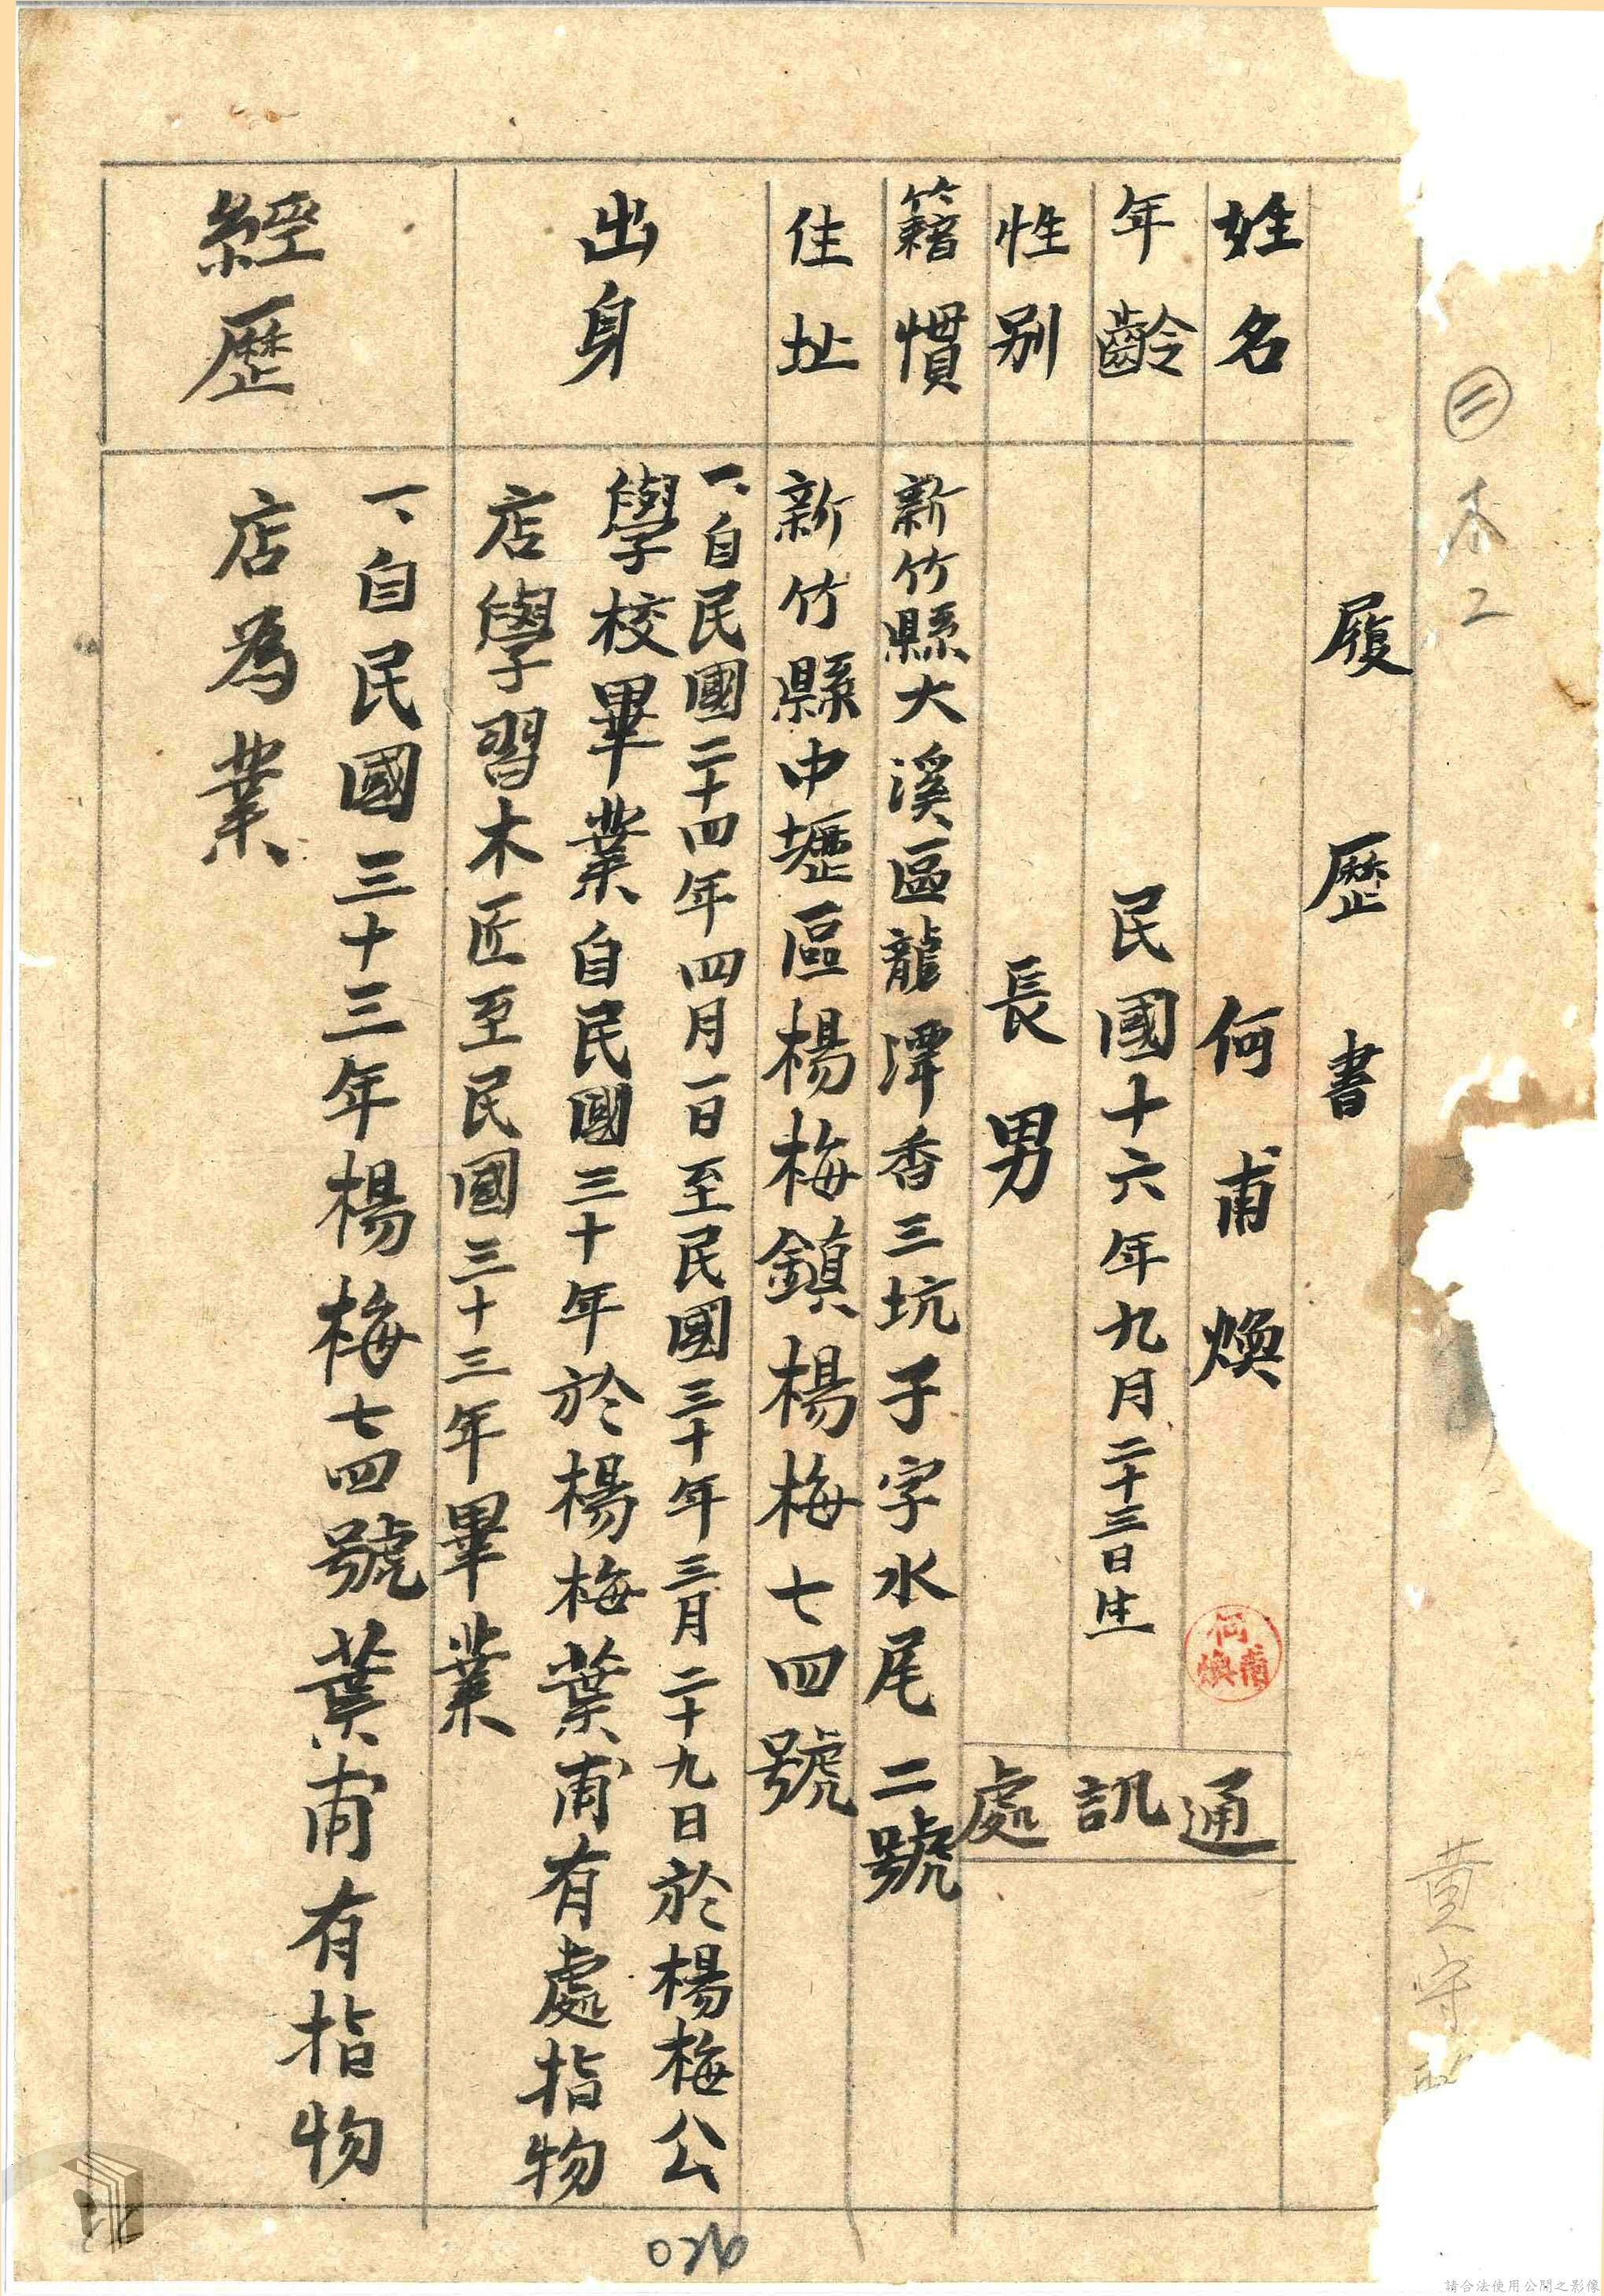 ㊁ 木工
履歷書
姓名 何甫煥
何甫煥
年齡 民國十六年九月二十三日生
性别 長男
通訊處
籍慣 新竹縣大溪區龍潭香三坑子字水尾二號
住址 新竹縣中壢區楊梅鎮楊梅七四號
出身 一、自民國二十四年四月一日至民國三十年三月二十九日於楊梅公
學校畢業自民國三十年於楊梅葉甫有處指物
店學習木匠至民國三十三年畢業
經歷 一、自民國三十三年楊梅七四號葉甫有指物
店為業
黄守
026
請合法使用公開之影像